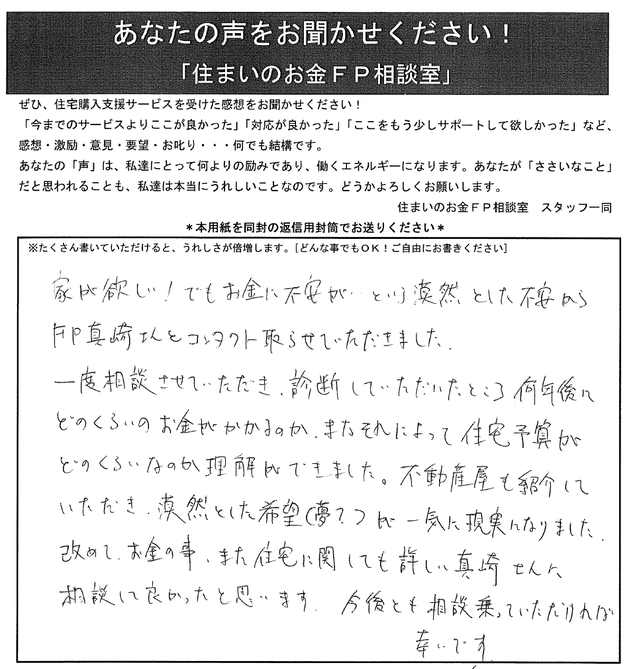 あなたの声をお聞かせください！
「住まいのお金ＦＰ相談室」
ぜひ、住宅購入支援サービスを受けた感想をお聞かせください！
「今までのサービスよりここが良かった」「対応が良かった」「ここをもう少しサポートして欲しかった」など、
感想・激励・意見・要望・お叱り・・・何でも結構です。
あなたの「声」は、私達にとって何よりの励みであり、働くエネルギーになります。あなたが「ささいなこと」
だと思われることも、私達は本当にうれしいことなのです。どうかよろしくお願いします。
住まいのお金ＦＰ相談室　スタッフ一同
＊本用紙を同封の返信用封筒でお送りください＊
※たくさん書いていただけると、うれしさが倍増します。［どんな事でもＯＫ！ご自由にお書きください］
家が欲しい！でもお金に不安が…という漠然とした不安から
FP真崎さんとコンタクト取らせていただきました。
一度相談させていただき、診断していただいたところ何年後に
どのくらいのお金がかかるのか、またそれによって住宅予算が
どのくらいなのか理解ができました。不動産屋も紹介して
いただき、漠然とした希望（夢？）が一気に現実になりました。
改めて、お金の事、また住宅に関しても詳しい真崎さんに
相談して良かったと思います。今後とも相談乗っていただければ
幸いです。